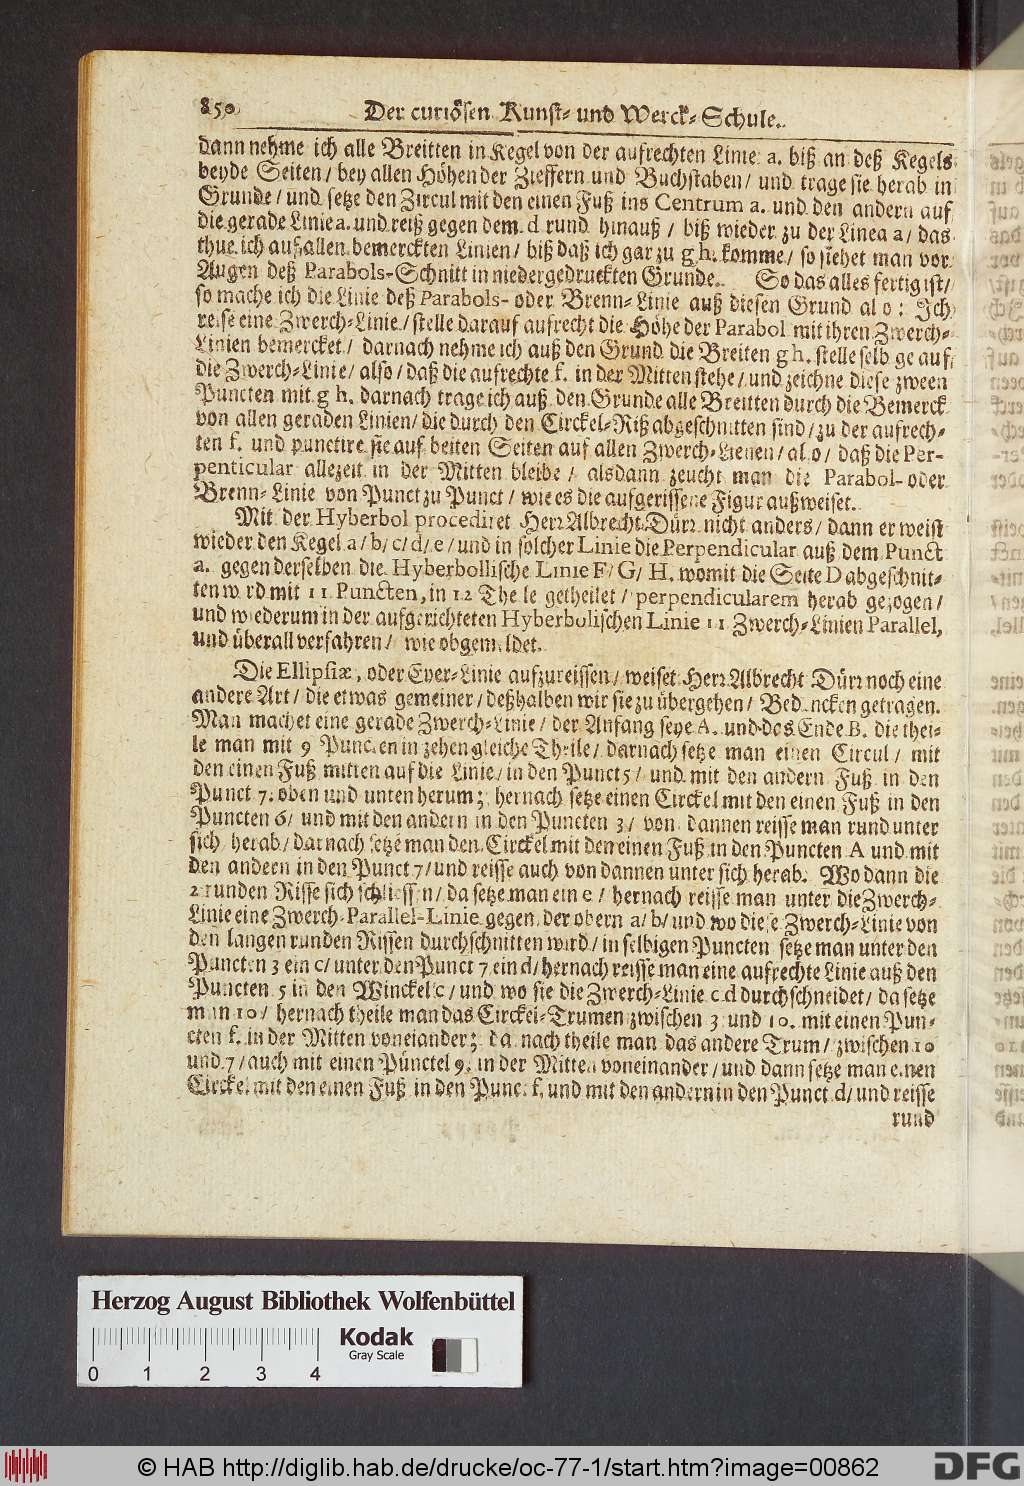 850 Der curiösen Kunst- und Werck-Schule.
dann nehme ich alle Breitten in Kegel von der aufrechten Linie a. biß an deß Kegels
beyde Seiten / bey allen Höhen der Zieffern und Buchstaben / und trage sie herab in
Grunde / und setze den Zircul mit den einen Fuß ins Centrum a. und den andern auf
die gerade Linie a. und reiß gegen dem d rund hinauß / biß wieder zu der Linea a / das
thue ich auf allen bemerckten Linien / biß daß ich gar zu g h. komme / so siehet man vor
Augen deß Parabols-Schnitt in niedergedruckten Grunde. So das alles fertig ist /
so mache ich die Linie deß Parabols- oder Brenn-Linie auß diesen Grund al o : Ich
reise eine Zwerch-Linie / stelle darauf aufrecht die Höhe der Parabol mit ihren Zwerch-
Linien bemercket / darnach nehme ich auß den Grund die Breiten g h. stelle selb ge auf
die Zwerch-Linie / also / daß die aufrechte f. in der Mitten stehe / und zeichne diese zween
Puncten mit g h. darnach trage ich auß den Grunde alle Breitten durch die Bemerck
von allen geraden Linien / die durch den Circkel-Riß abgeschnitten sind / zu der aufrech-
ten f. und punctire sie auf beiten Seiten auf allen Zwerch-Lienen / al o / daß die Per-
penticular allezeit in der Mitten bleibe / alsdann zeucht man die Parabol- oder
Brenn-Linie von Punct zu Punct / wie es die aufgerissene Figur außweiset.
Mit der Hyberbol procediret Herr Albrecht Dürr nicht anders / dann er weist
wieder den Kegel a / b / c / d / e / und in solcher Linie die Perpendicular auß dem Punct
a. gegen derselben die Hyberbollische Linie F / G / H. womit die Seite D abgeschnit-
ten w rd mit 11 Puncten, in 12 The le getheilet / perpendicularem herab gezogen /
und wiederum in der aufgerichteten Hyberbolischen Linie 11 Zwerch-Linien Parallel,
und überall verfahren / wie obgemeldet.
Die Ellipsiæ, oder Eyer-Linie aufzureissen / weiset Herr Albrecht Dürr noch eine
andere Art / die etwas gemeiner / deßhalben wir sie zu übergehen / Bedencken getragen.
Man machet eine gerade Zwerch-Linie / der Anfang seye A. und das Ende B. die thei-
le man mit 9 Puncten in zehen gleiche Theile / darnach setze man einen Circul / mit
den einen Fuß mitten auf die Linie / in den Punct 5 / und mit den andern Fuß in den
Punct 7. oben und unten herum ; hernach setze einen Circkel mit den einen Fuß in den
Puncten 6 / und mit den andern in den Puncten 3 / von dannen reisse man rund unter
sich herab / darnach setze man den Circkel mit den einen Fuß in den Puncten A und mit
den andern in den Punct 7 / und reisse auch von dannen unter sich herab. Wo dann die
2 runden Risse sich schliessen / da setze man ein e / hernach reisse man unter die Zwerch-
Linie eine Zwerch-Parallel-Linie gegen der obern a / b / und wo diese Zwerch-Linie von
den langen runden Rissen durchschnitten wird / in selbigen Puncten setze man unter den
Puncten 3 ein c / unter den Punct 7 ein d / hernach reisse man eine aufrechte Linie auß den
Puncten 5 in den Winckel c / und wo sie die Zwerch-Linie c d durchschneidet / da setze
man 10 / hernach theile man das Circkel-Trumen zwischen 3 und 10. mit einen Pun-
cten f. in der Mitten voneiander ; da nach theile man das andere Trum / zwischen 10
und 7 / auch mit einen Pünctel 9. in der Mitten voneinander / und dann setze man einen
Circkel mit den einen Fuß in den Punct f. und mit den andern in den Punct d / und reisse
rund
Herzog August Bibliothek Wolfenbüttel
Kodak
Gray Scale
0 1 2 3 4
© HAB http://diglib.hab.de/drucke/oc-77-1/start.htm?image=00862
DFG